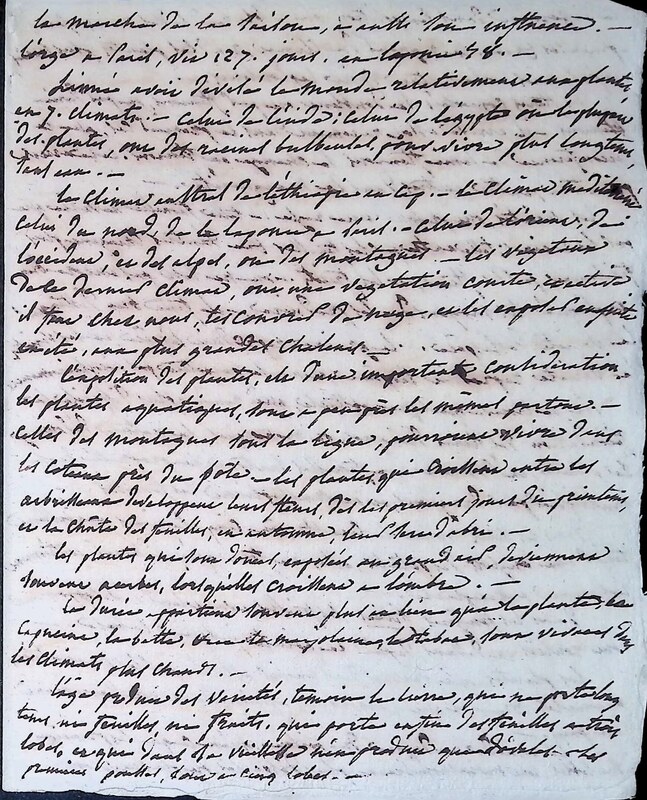 la marche de la saison, a aussi son influence. —
l'orge a Paris, vit 127. jours. en laponie 58. —
Linnée avoit divisé le monde relativement aux plantes
en 7. climats. — celui de l'inde; celui de l'egypte où la plupart
des plantes, ont des racines bulbeuses, pour vivre plus longtems
sans eau. —
le climat austral de l'éthiopie au cap. — le climat
celui du nord, de la laponie a Paris. — celui de de
l'occident, et des alpes, ou des montagnes — les vegetaux
de ce dernier climat, ont une vegetation courte, et active
il faut chez nous, les couvrir de neige, et les exposer ensuite
en été, aux plus grandes chaleurs. —
l'exposition des plantes, est d'une importante consideration
les plantes aquatiques, sont a peu près les mêmes partout. —
celles des montagnes sous la ligne, pourroient vivre dans
les coteaux près du pole — les plantes qui croissent entre les
arbrisseaux developpent leurs fleurs, dès les premiers jours du printems,
et la chûte des feuilles, en automne, leur sert d'abri. —
les plantes qui sont douces, exposées au grand air, deviennent
souvent acerbes, lorsqu'elles croissent a l'ombre. —
la durée appartient souvent plus au lieu qu'a la plante. la
capucine, la bette, la marjolaine, le tabac, sont vivaces dans
les climats plus chauds. —
l'age produit des varietés, temoin le lierre, qui ne porte long
tems, ni feuilles, ni fruits, qui porte ensuite des feuilles a trois
lobes, et que dans sa vieillesse n'en produit que d'ovales. les
premieres pousses, sont a cinq lobes. —